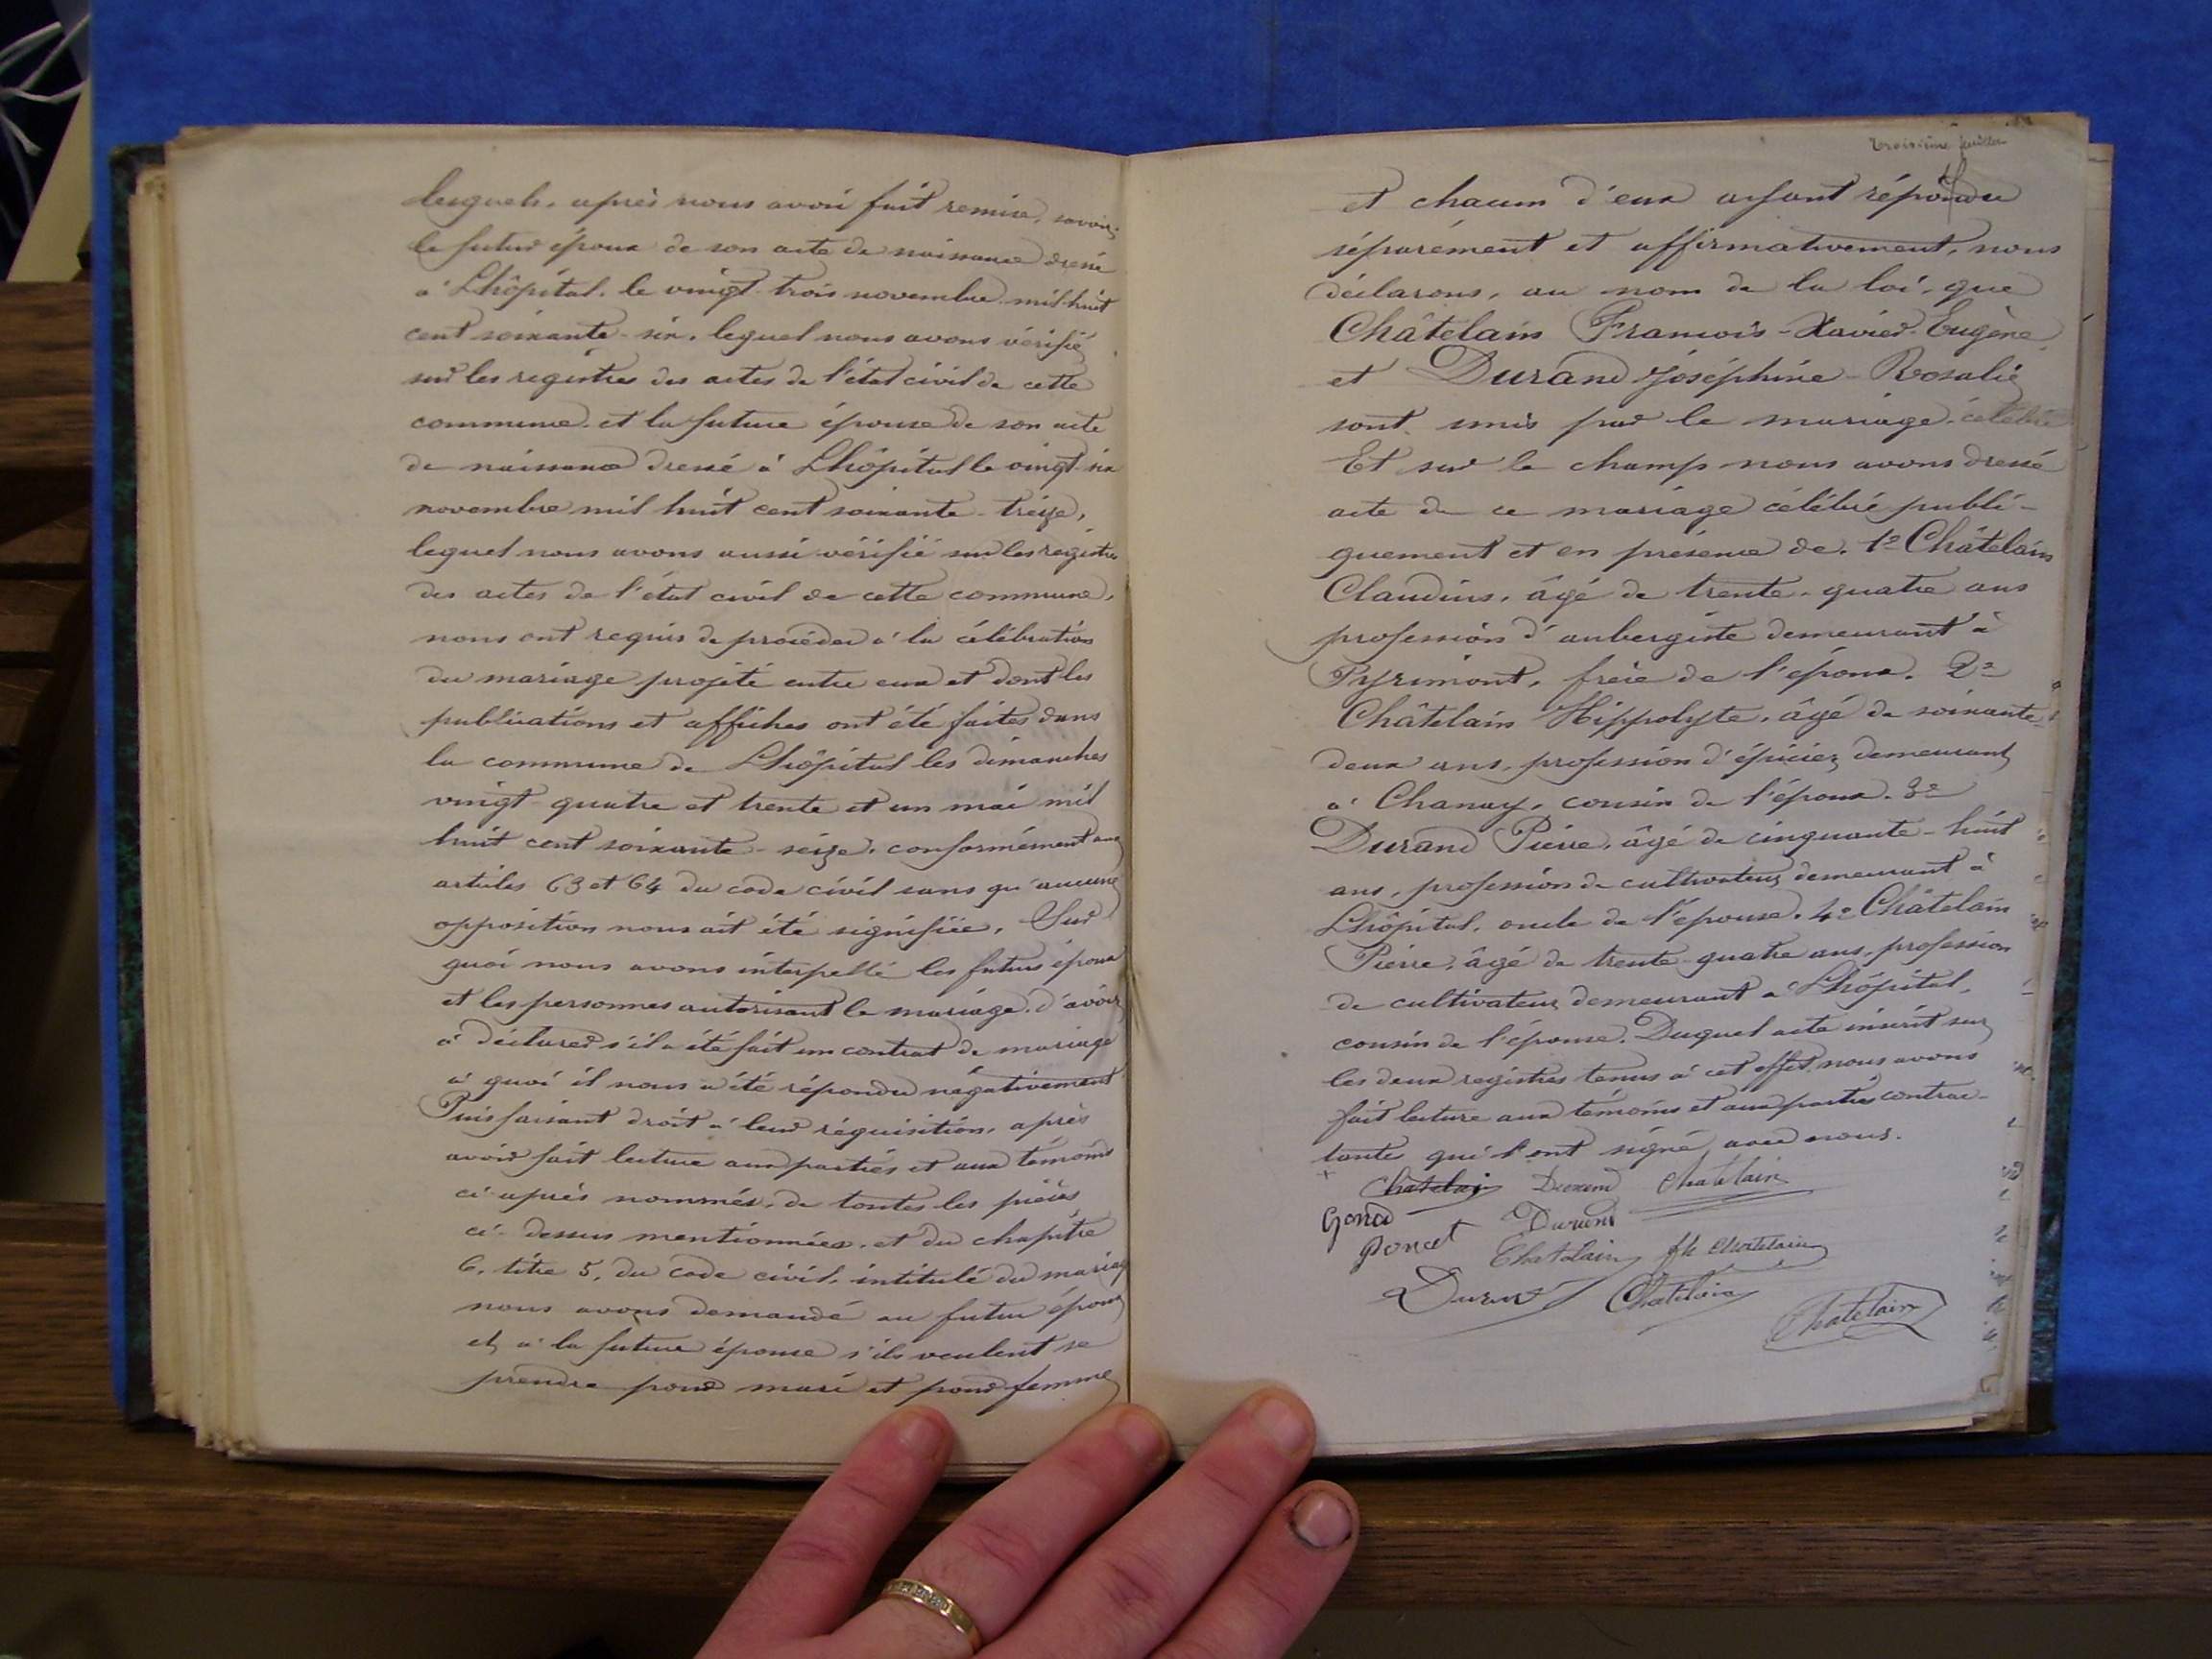 lesquels, après nous avoir fait remise, savoir:
le futur époux de son acte de naissance dressé
à Lhôpital, le vingt-trois novembre mil huit
cent soixante-six, lequel nous avons vérifié
sur les registres des actes de l'état civil de cette
commune et la future épouse de son acte
de naissance dressé à Lhôpital le vingt-six
novembre mil huit cent soixante-treize,
lequel nous avons aussi vérifié sur les registres
des actes de l'état civil de cette commune,
nous ont requis de procéder à la célébration
du mariage projeté entre eux et dont les
publications et affiches ont été faites dans
la commune de Lhôpital les dimanches
vingt-quatre et trente et un mai mil
huit cent soixante-seize, conformément aux
articles 63 et 64 du code civil sans qu'aucune
opposition nous ait été signifiée, Sur
quoi nous avons interpellé les futurs époux
et les personnes autorisant le mariage, d'avoir
à déclarer s'il a été fait un contrat de mariage
à quoi il nous a été répondu négativement
Puis faisant droit à leur réquisition, après
avoir fait lecture aux parties et aux témoins
ci-après nommés, de toutes les pièces
ci-dessus mentionnées, et du chapitre
6, titre 5, du code civil, intitulé du mariage
nous avons demandé au futur époux
et à la future épouse s'ils veulent se
prendre pour mari et pour femme
troisième feuillet
et chacun d'eux ayant répondu
séparément et affirmativement, nous
déclarons, au nom de la loi, que
Châtelain François-Xavier-Eugène
et Durand Joséphine-Rosalie
sont unis par le mariage. célébré
Et sur le champ nous avons dressé
acte de ce mariage célébré publi-
quement et en présence de. 1º Châtelain
Claudius, âgé de trente-quatre ans
profession d'aubergiste demeurant à
Pyrimont, frère de l'époux. 2º
Châtelain Hippolyte, âgé de soixante-
deux ans, profession d'épicier, demeurant
à Chanay, cousin de l'époux. 3º
Durand Pierre, âgé de cinquante-huit
ans, profession de cultivateur, demeurant à
Lhôpital, oncle de l'épouse. 4º Châtelain
Pierre, âgé de trente-quatre ans, profession
de cultivateur, demeurant à Lhôpital,
cousin de l'épouse. Duquel acte inscrit sur
les deux registres tenus à cet effet nous avons
fait lecture aux témoins et aux parties contrac-
tante qui l'ont signé avec nous.
Chatelain Durand Chatelain
Gonod Durand
Poncet Chatelain fh Chatelain
Durand Chatelain Chatelain